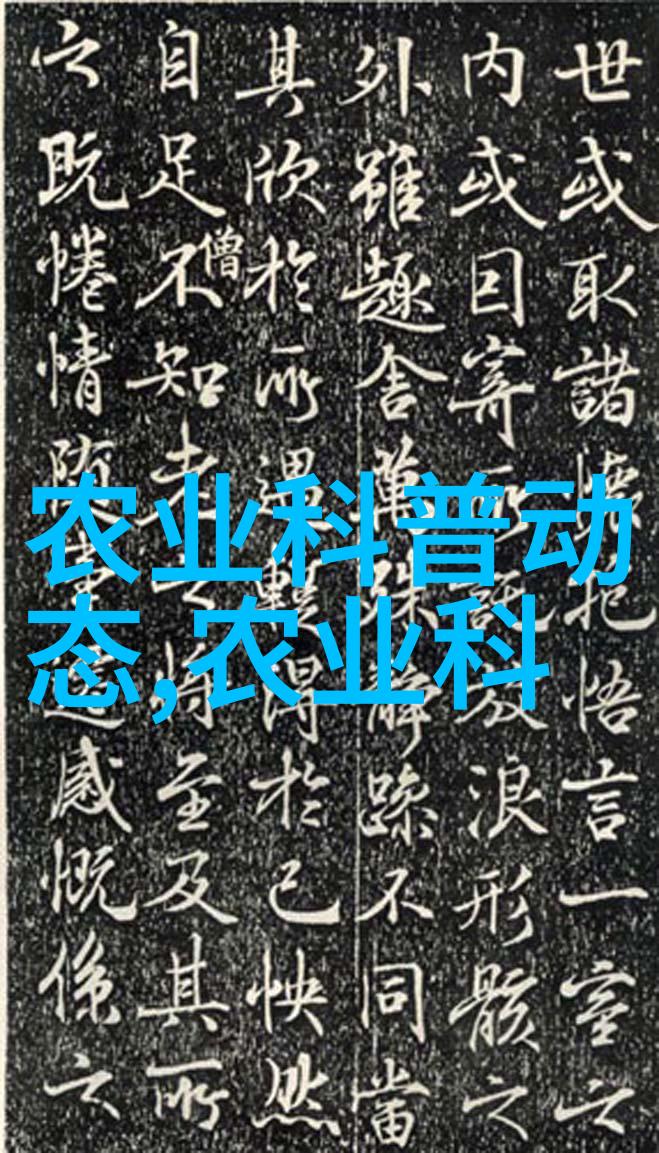 世或取諸懷抱悟言一室之
內或因寄所託放浪形骸之
外雖趣舍萬殊靜躁不同當
其欣於所遇蹔得於己怏然
自足不知老之將至及其所
僧
之既惓情隨事遷感慨係之
农业科普动
态,农业科